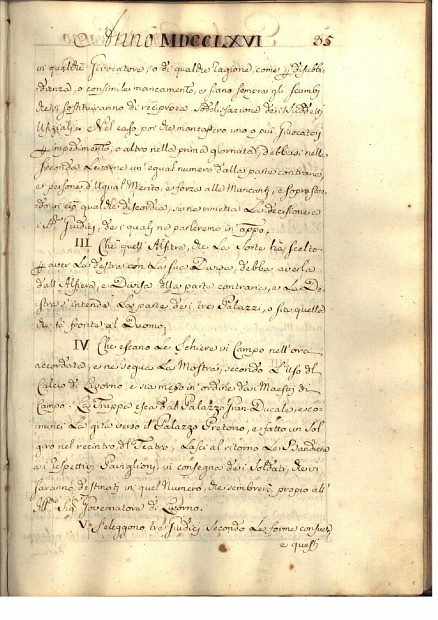 Anno MDCCLXVI 35
in qualche Giocatore, o di qualche ragione, come di disubbi
dienza, o consimile mancamento, e siano sempre gli scambj
che si sostituiranno di reciproca sodisfazione de i Sudetti
Ufiziali. E Nel caso, poi che mancassero uno o più Giocatori
p impedimento, o altro nella prima giornata, debbasi nella
Seconda Levarne un egual numero dalla parte contraria,
e persone d'Ugual Merito, e forza alle Mancanti, e sopra
do in ciò qualche discordia, se ne rimetta La decisione a
i Giudici, de i quali ne parleremo in appo.
III. Che quell'Alfiere, che La Sorte avrà scelto
p aver La destra con La sua Divisa, debba averla
dall'Alfiere, e Divisa della parte contraria, e La De
stra s'intenda La parte de i tre Palazzi, o sia quella
che fà fronte al Duomo.
IV. Che escano Le Schiere in Campo nell'ora
accordata, e ne segua La Mostra, secondo L'uso del
Calcio di Livorno, e sia messo in ordine da i Maestri di
Campo. La Truppa esca dal Palazzo Gran Ducale, e co
minci La gita verso il Palazzo Pretorio, e fatto un Sol
giro nel recinto del Teatro, Lasci al ritorno Le Bandiere
ai respettivi Paviglioni, in consegna de i Soldati, che vi
saranno destinati in quel Numero, che sembrerà proprio all'
Ill. Sig. Governatore di Livorno.
V. Si eleggono trè Giudici Secondo Le forme consuete
e questi